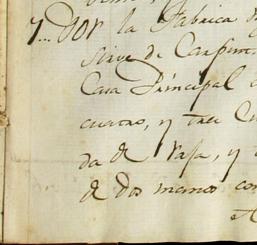 7... Por la Fabrica
sirve de Carpin
Casa Principal
cuatro, y tres
da de rasa, y
de dos manos con